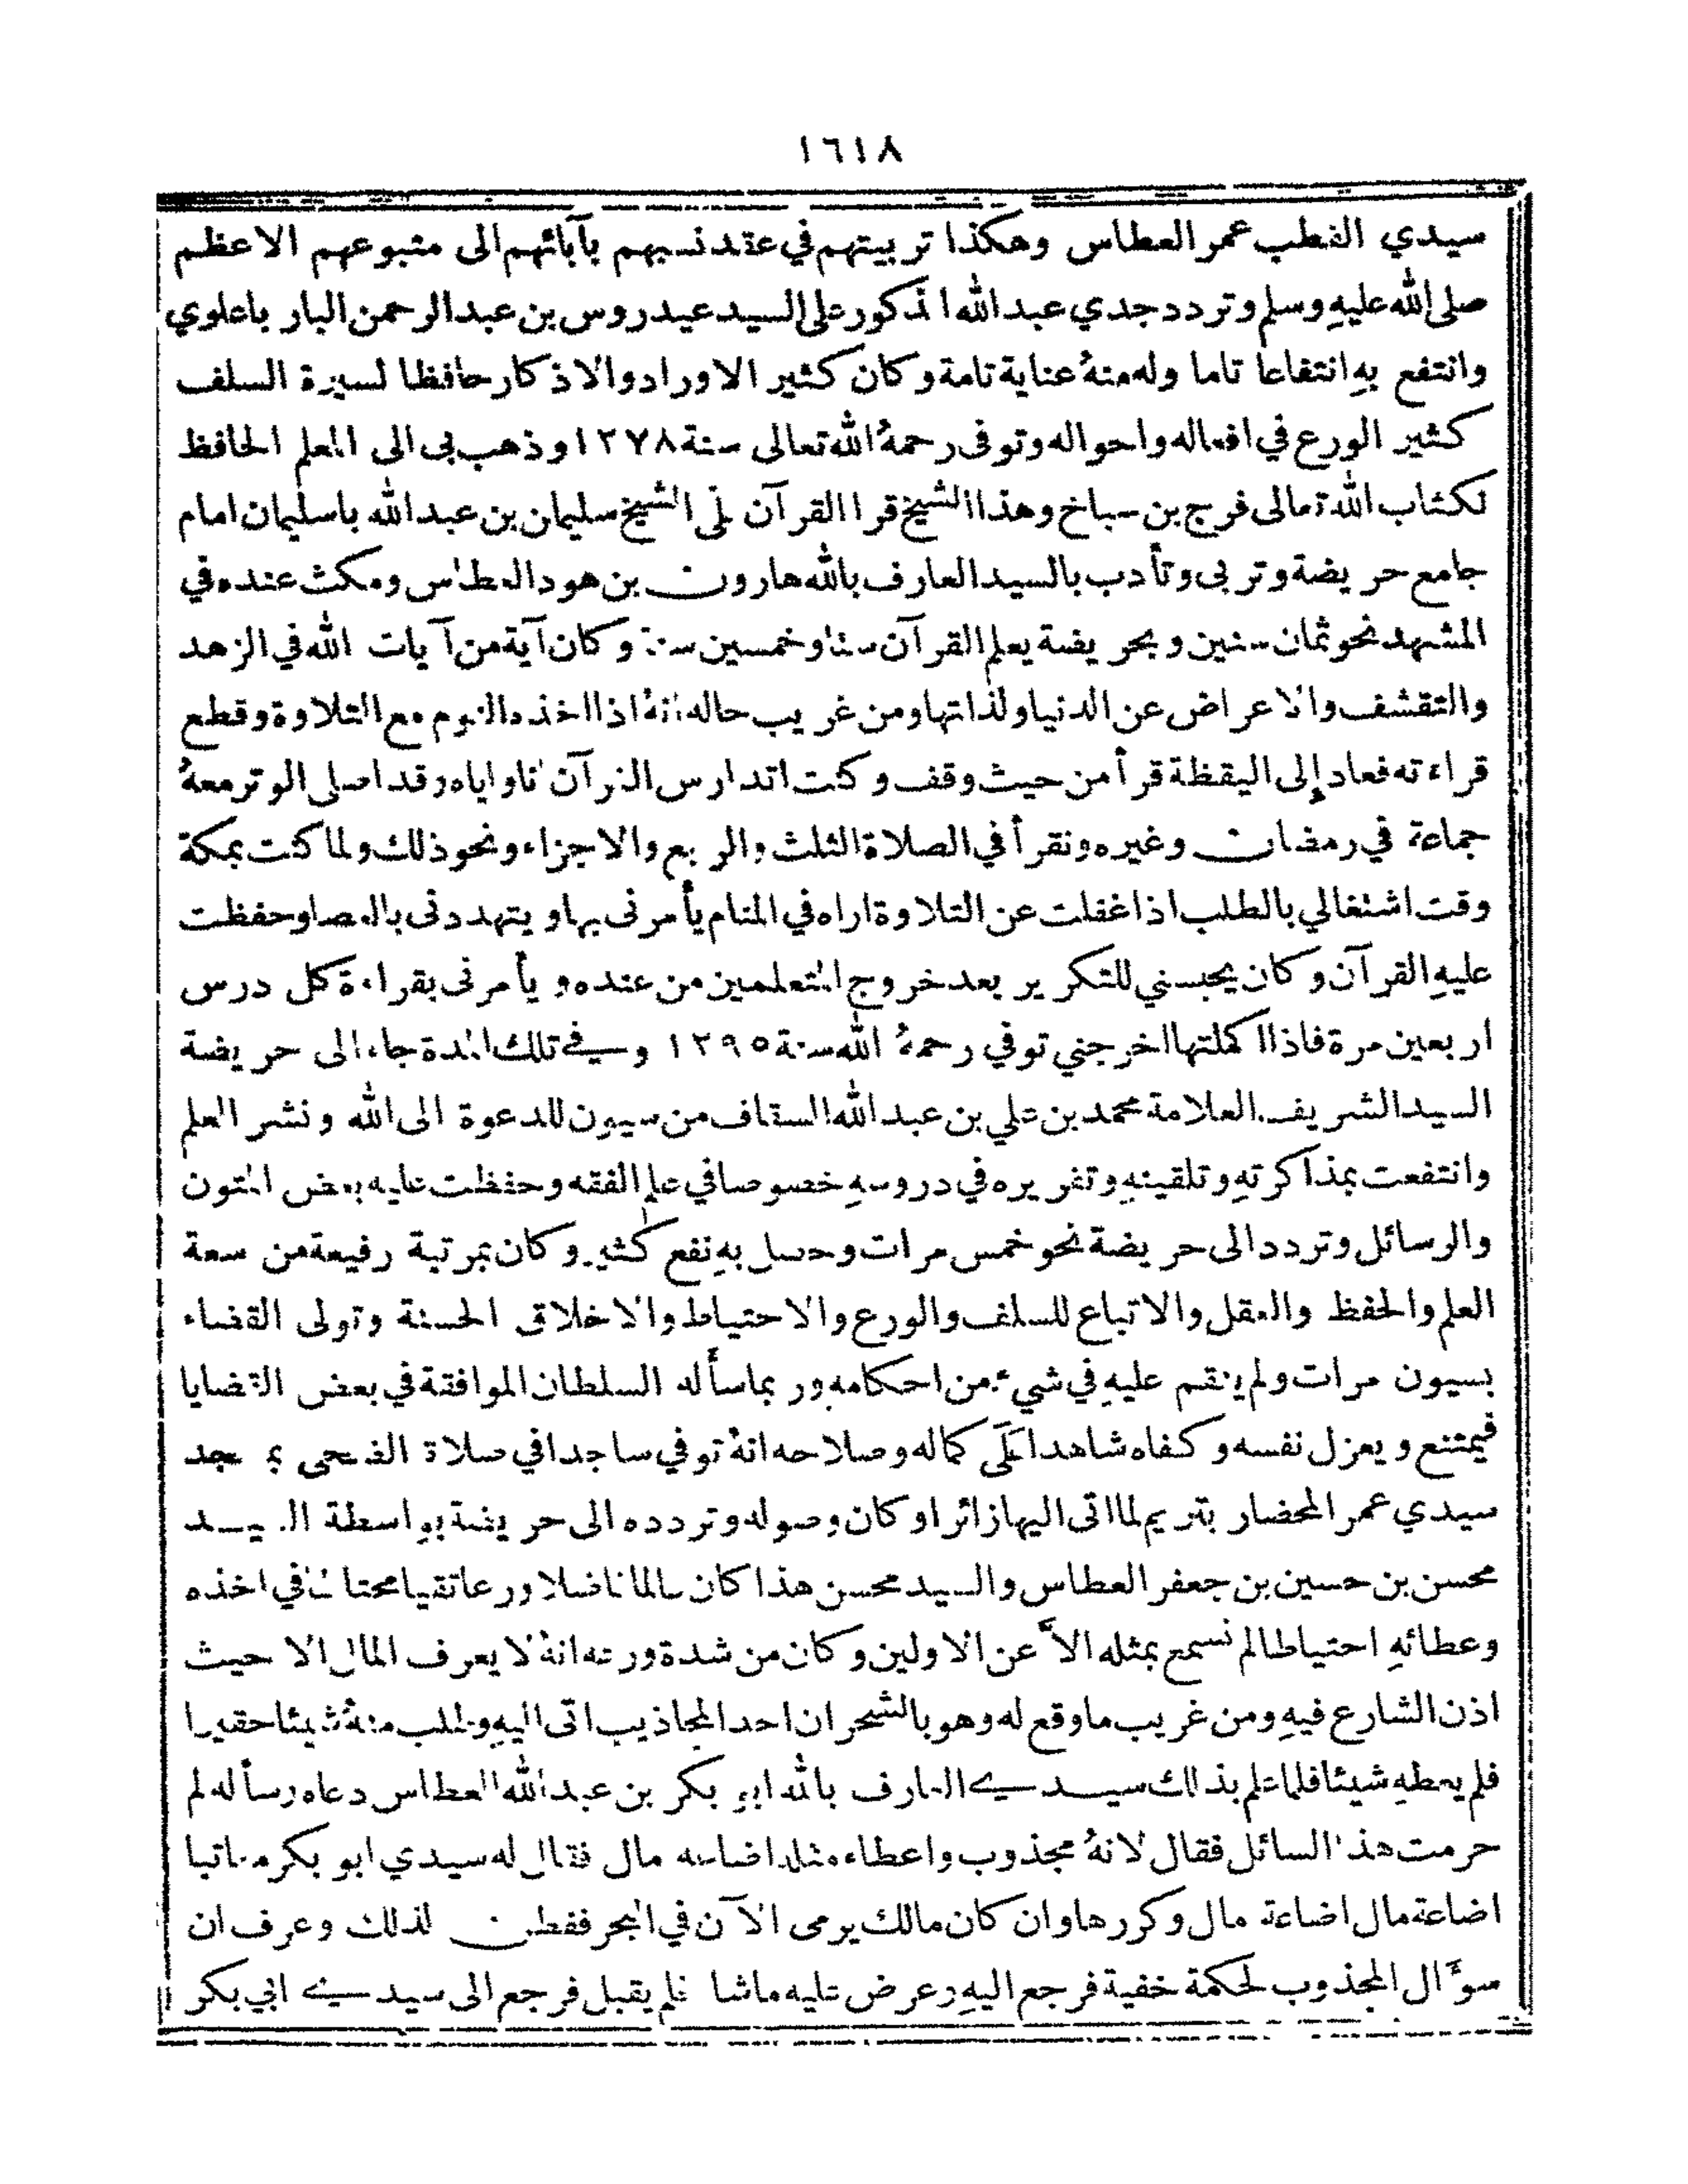 ١٦١٨
سيدي القطب عمر العطاس وهكذا تربيتهم في عقد نسبهم بآبائهم الى متبوعهم الاعظم
صلى الله عليهِ وسلم وتردد جدي عبد الله المذكور على السيد عيدروس بن عبد الرحمن البار باعلوي
وانتفع بهِ انتفاعا تاما وله منهُ عناية تامة وكان كثير الاوراد والاذكار حافظا لسيرة السلف
كثير الورع في افعاله واحواله وتوفى رحمهُ الله تعالى سنة ١٢٧٨ وذهب بى الى المعلم الحافظ
لكتاب الله تعالى فرج بن سباخ وهذا الشيخ قرا القرآن على الشيخ سليمان بن عبد الله باسليمان امام
جامع حريضة وتربى وتأدب بالسيد العارف بالله هارون بن هود العطاس ومكث عنده في
المشهد نحو ثمان سنين وبحريضة يعلم القرآن ستا وخمسين سنة وكان آية من آيات الله في الزهد
والتقشف والاعراض عن الدنيا ولذاتها ومن غريب حاله انهُ اذا اخذه النوم مع التلاوة وقطع
قراءته فعاد إلى اليقظة قرأ من حيث وقف وكنت اتدارس القرآن انا واياه وقد اصلى الوتر معهُ
جماعة في رمضان وغيره ونقرأ في الصلاة الثلث والربع والاجزاء ونحو ذلك ولما كنت بمكة
وقت اشتغالي بالطلب اذا غفلت عن التلاوة اراه في المنام يأمرنى بها ويتهددنى بالعصا وحفظت
عليهِ القرآن وكان يحبسني للتكرير بعد خروج المتعلمين من عنده ويأمرنى بقراءة كل درس
اربعين مرة فاذا اكملتها اخرجني توفي رحمهُ الله سنة ١٢٩٥ وفي تلك المدة جاء الى حريضة
السيد الشريف العلامة محمد بن علي بن عبد الله السقاف من سيون للدعوة الى الله ونشر العلم
وانتفعت بمذاكرتهِ وتلقينهِ وتقريره في دروسهِ خصوصا في علم الفقه وحفظت عليه بعض المتون
والرسائل وتردد الى حريضة نحو خمس مرات وحصل بهِ نفع كثير وكان بمرتبة رفيعة من سعة
العلم والحفظ والعقل والاتباع للسلف والورع والاحتياط والاخلاق الحسنة وتولى القضاء
بسيون مرات ولم ينقم عليهِ في شيء من احكامه وربما سأله السلطان الموافقة في بعض القضايا
فيمتنع ويعزل نفسه وكفاه شاهدا على كماله وصلاحه انهُ توفي ساجدا في صلاة الضحى بمسجد
سيدي عمر المحضار بتريم لما اتى اليها زائرا وكان وصوله وتردده الى حريضة بواسطة السيد
محسن بن حسين بن جعفر العطاس والسيد محسن هذا كان عالما فاضلا ورعا تقيا محتاطا في اخذه
وعطائهِ احتياطا لم نسمع بمثله الاَّ عن الاولين وكان من شدة ورعه انهُ لا يعرف المال الا حيث
اذن الشارع فيهِ ومن غريب ما وقع له وهو بالشحر ان احد المجاذيب اتى اليهِ وطلب منهُ شيئا حقيرا
فلم يعطهِ شيئا فلما علم بذلك سيدي العارف بالله ابو بكر بن عبد الله العطاس دعاه وسأله لم
حرمت هذا السائل فقال لانهُ مجذوب واعطاء مثله اضاعة مال فقال له سيدي ابو بكر معاتبا
اضاعة مال اضاعة مال وكررها وان كان مالك يرمى الآن في البحر ففطن لذلك وعرف ان
سوَّال المجذوب لحكمة خفية فرجع اليهِ وعرض عليه ماشا فلم يقبل فرجع الى سيدي ابي بكر